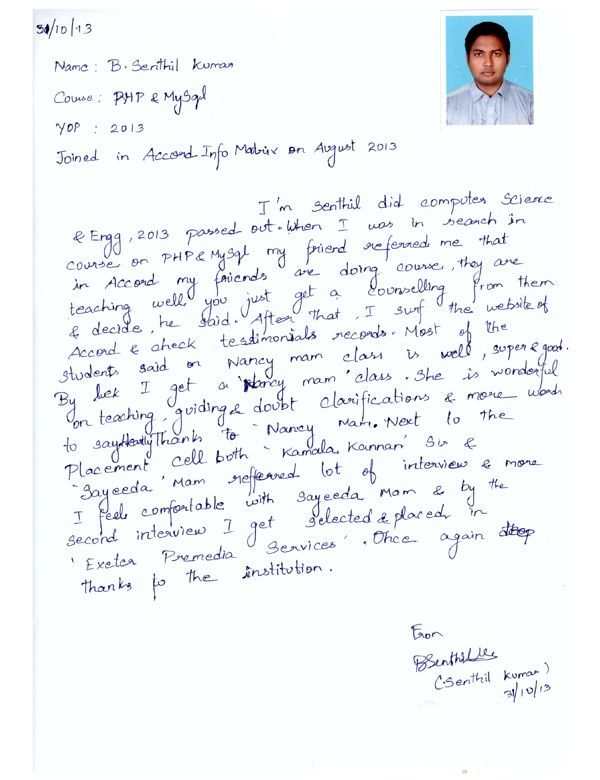 31/10/13
Name : B. Senthil Kumar
Course : PHP & MySql
YOP : 2013
Joined in Accord Info Matrix on August 2013
I'm Senthil did computer Science
& Engg, 2013 passed out. When I was in search in
course on PHP & MySql my friend referred me that
in Accord my friends are doing course, they are
teaching well you just get a counselling from them
& decide, he said. After that, I surf the website of
Accord & check testimonials records. Most of the
students said on Nancy mam class is well, super & good.
By luck I get a 'Nancy mam' class. She is wonderful
on teaching, guiding & doubt clarifications & more words
to say. Thanks to 'Nancy Mam. Next to the
Placement cell both 'Kamala Kannan' Sir &
'Sayeeda' Mam referred lot of interview & more
I feel comfortable with Sayeeda Mam & by the
second interview I get selected & placed in
'Exeter Premedia Services'. Once again
thanks to the institution.
From
BSenthil
(Senthil Kumar)
31/10/13